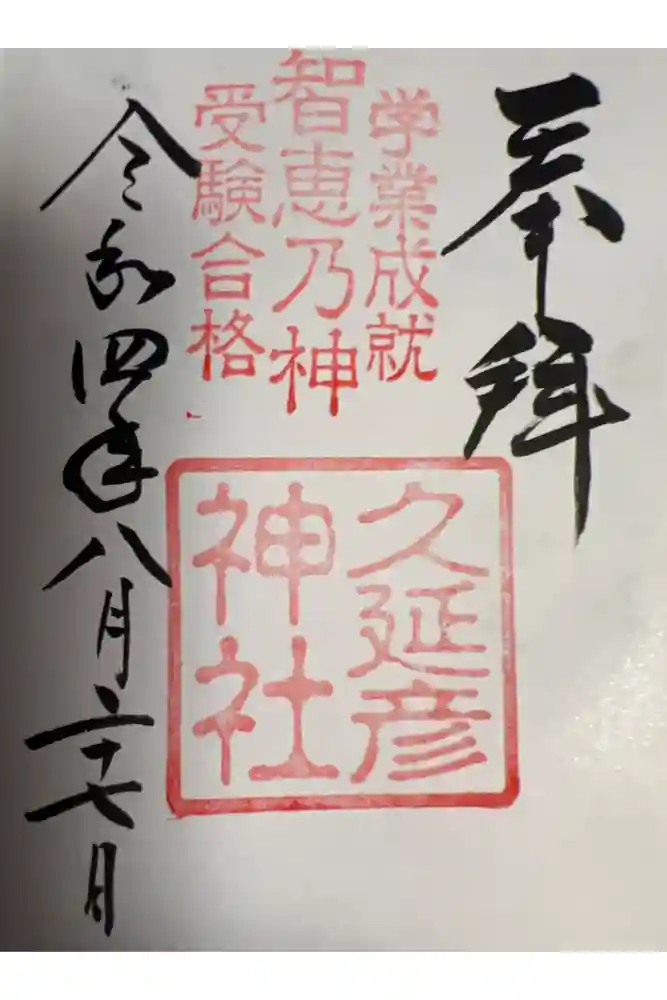 奉拝
学業成就
智恵乃神
受験合格
久延彦
神社
令和四年八月二十七日